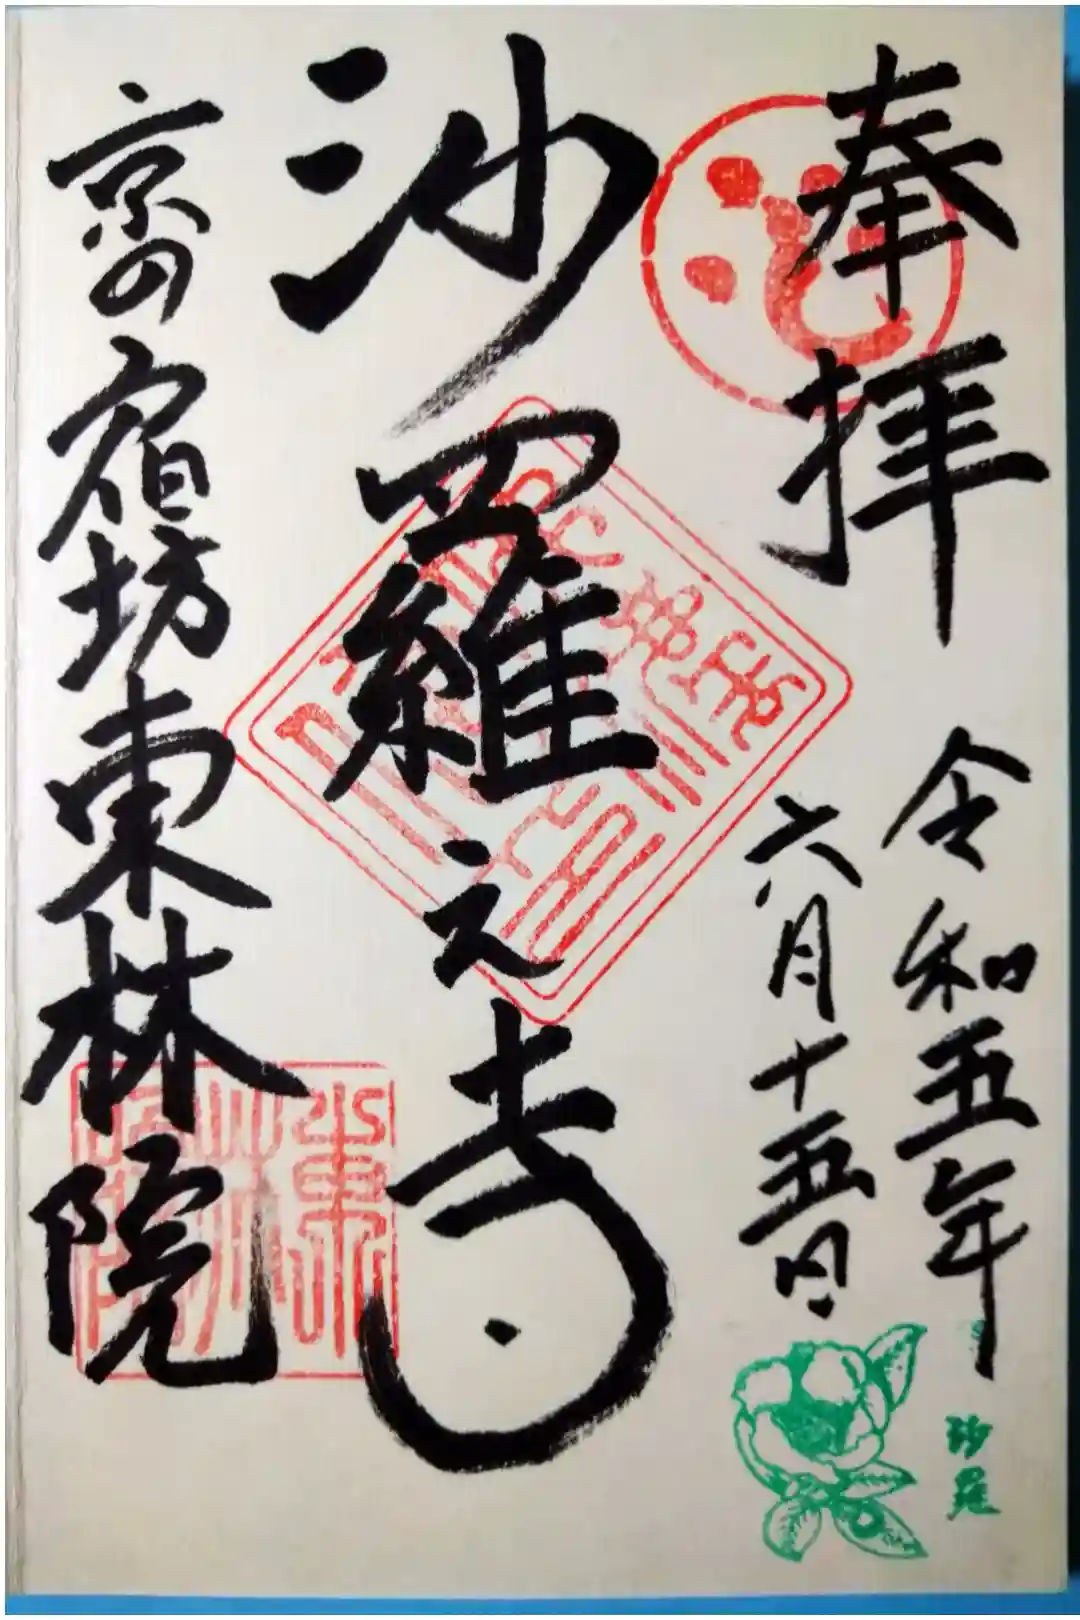 奉拝
令和五年
六月十五日
沙羅之寺
京の宿坊東林院
東林院
沙羅